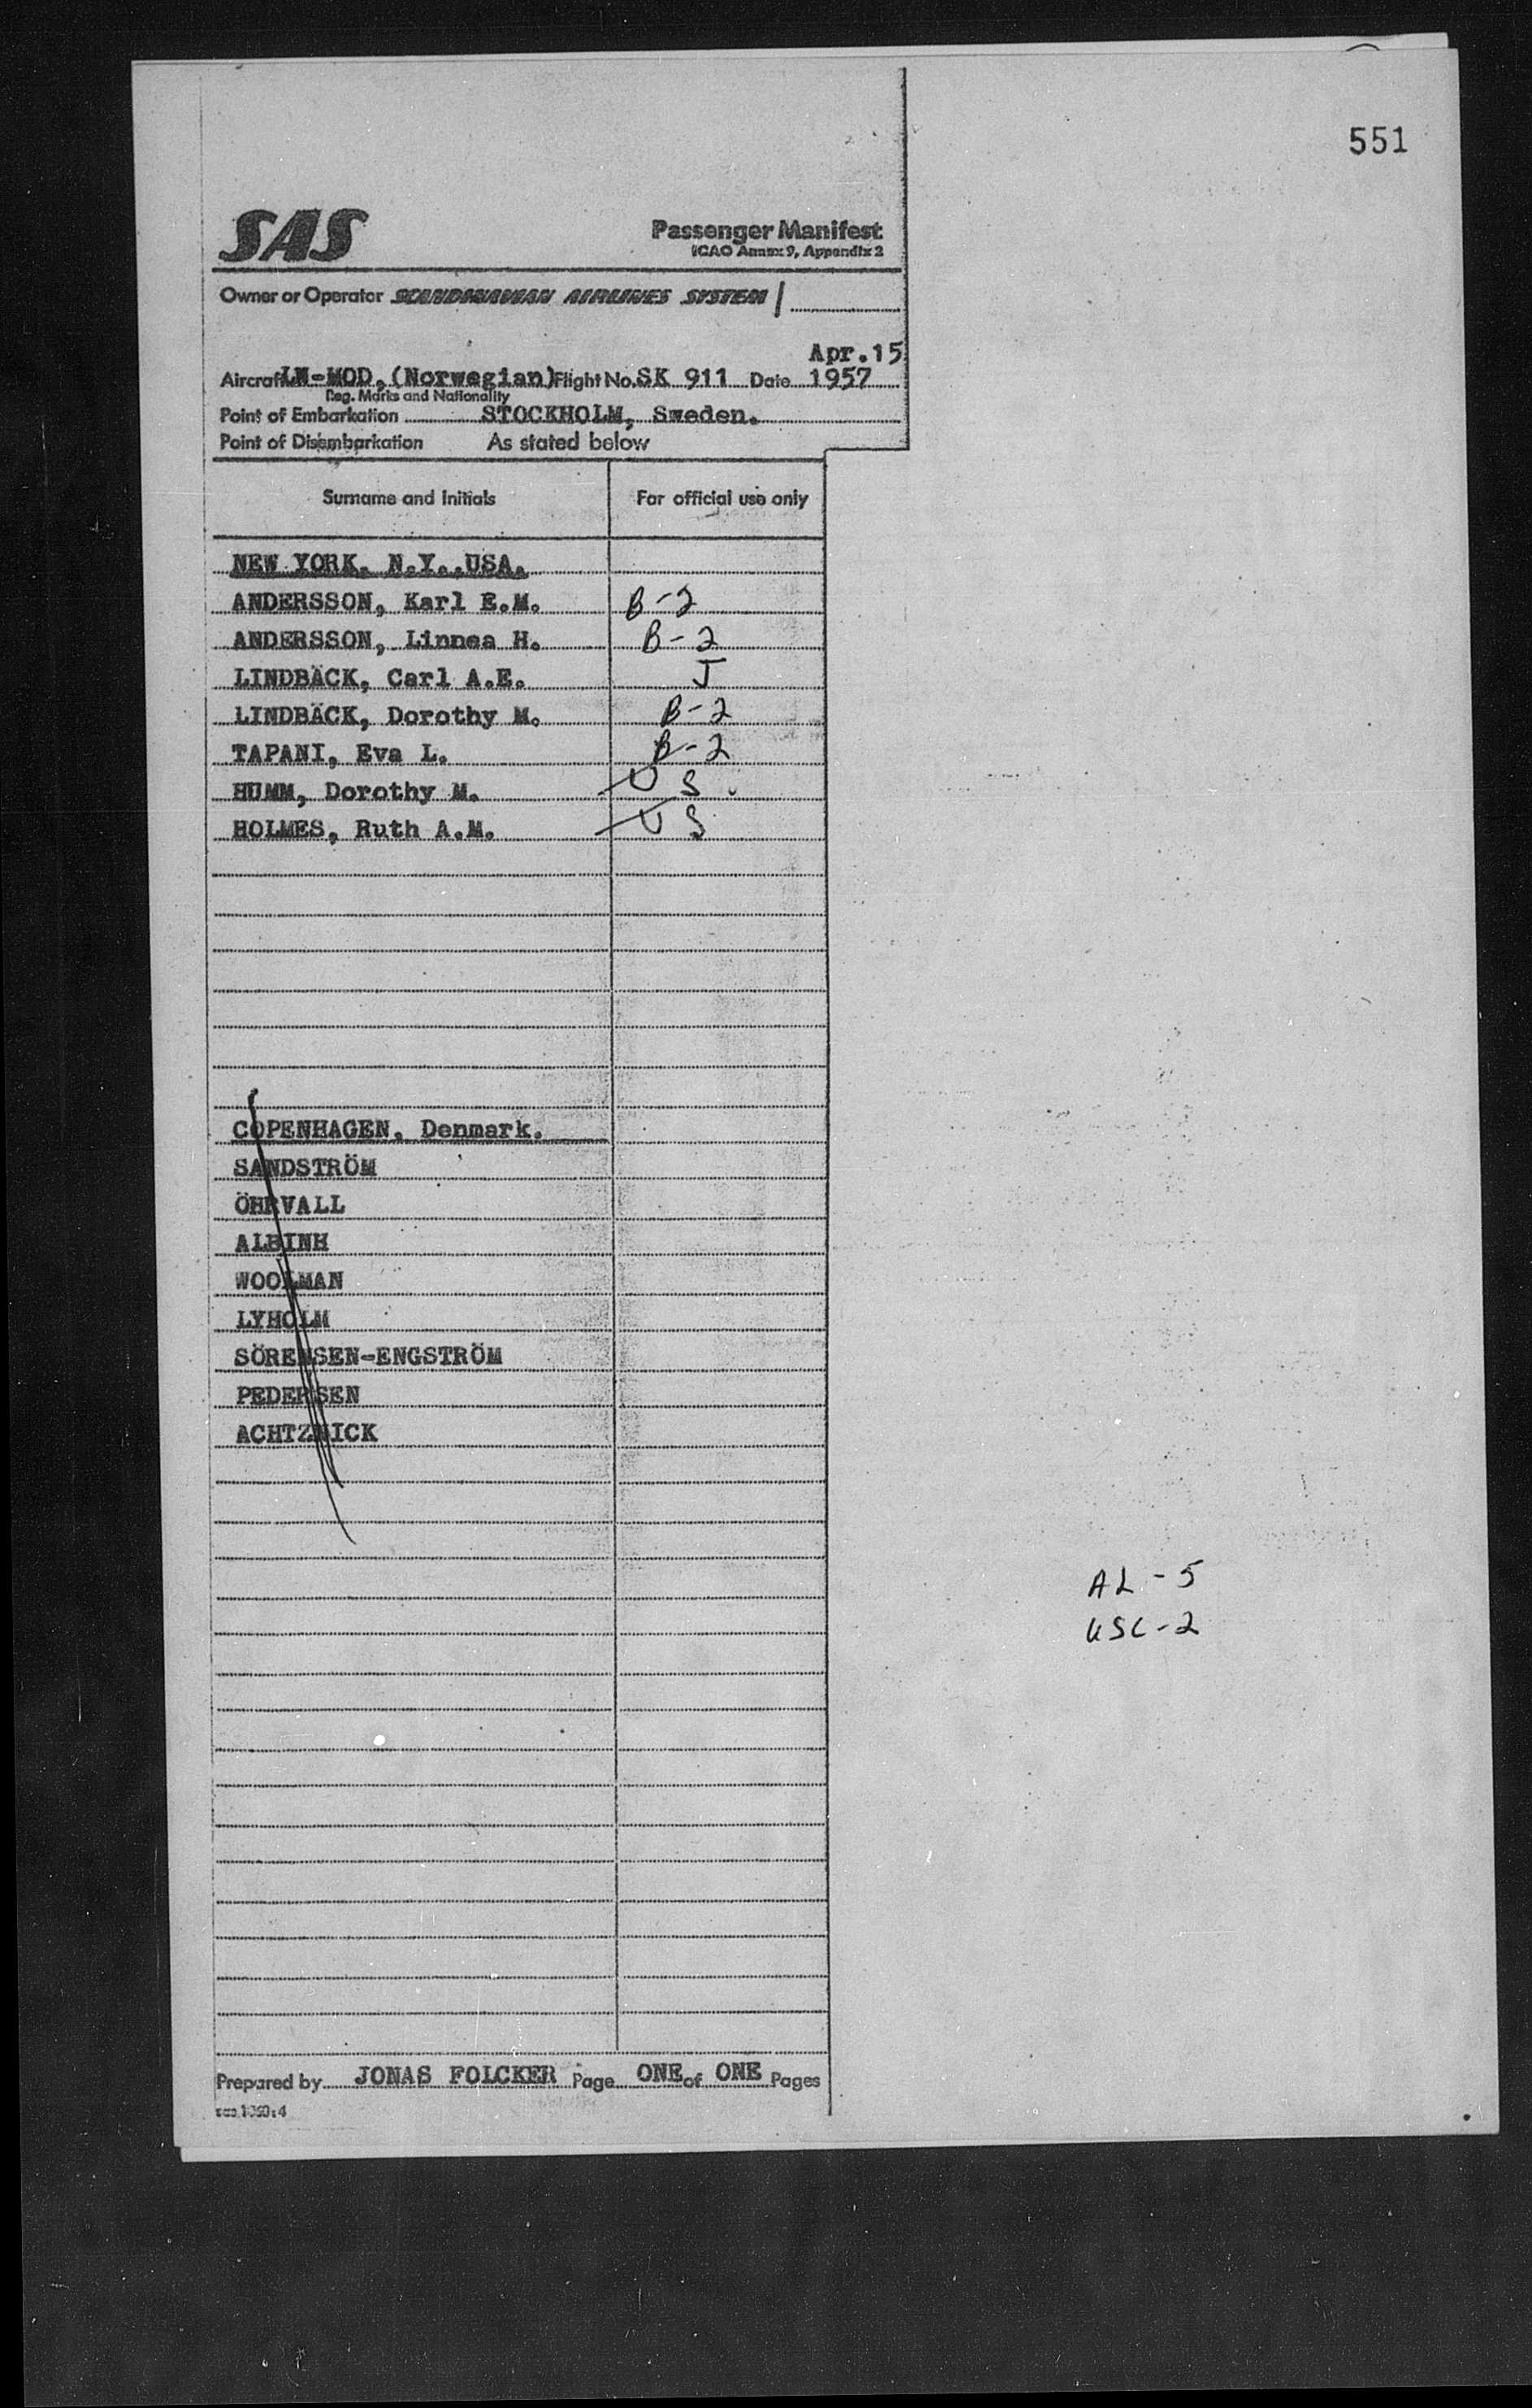 551
SAS
Passenger Manifest
ICAO Annex 9, Appendix 2
Owner or Operator SCANDINAVIAN AIRLINES SYSTEM /
Apr.15
Aircraft LN-MOD, (Norwegian) Flight No. SK 911 Date 1957
Reg. Marks and Nationality
Point of Embarkation STOCKHOLM, Sweden.
Point of Disembarkation As stated below
Surname and Initials For official use only
NEW YORK, N.Y., USA.
ANDERSSON, Karl E.M. B-2
ANDERSSON, Linnea H. B-2
LINDBÄCK, Carl A.E. J
LINDBÄCK, Dorothy M. B-2
TAPANI, Eva L. B-2
HUMM, Dorothy M. US
HOLMES, Ruth A.M. US
COPENHAGEN, Denmark.
SANDSTRÖM
ÖHRVALL
ALBINH
WOOLMAN
LYHOLM
SÖRENSEN-ENGSTRÖM
PEDERSEN
ACHTZNICK
AL-5
USC-2
Prepared by JONAS FOLCKER Page ONE of ONE Pages